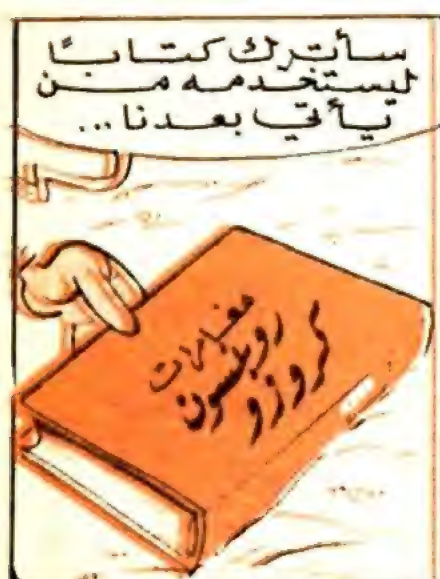 سأترك كتابًا
ليستخدمه من
يأتي بعدنا...
مغامرات
روبنسون
كروزو